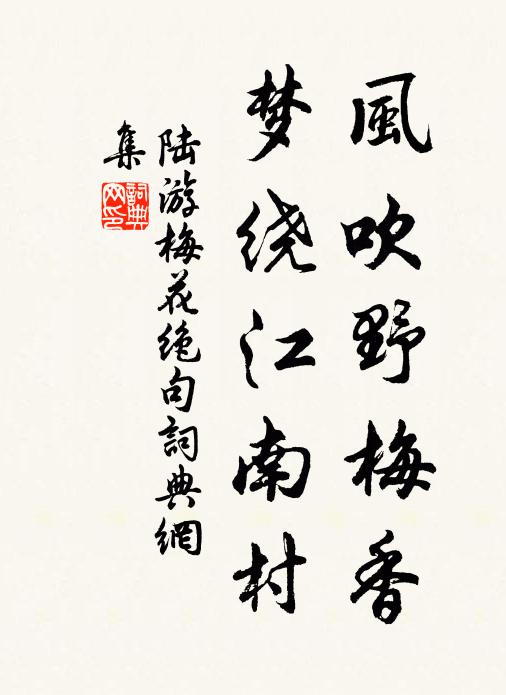 風吹野梅香
梦绕江南村
陆游梅花绝句詞典網
集
詞典
网印